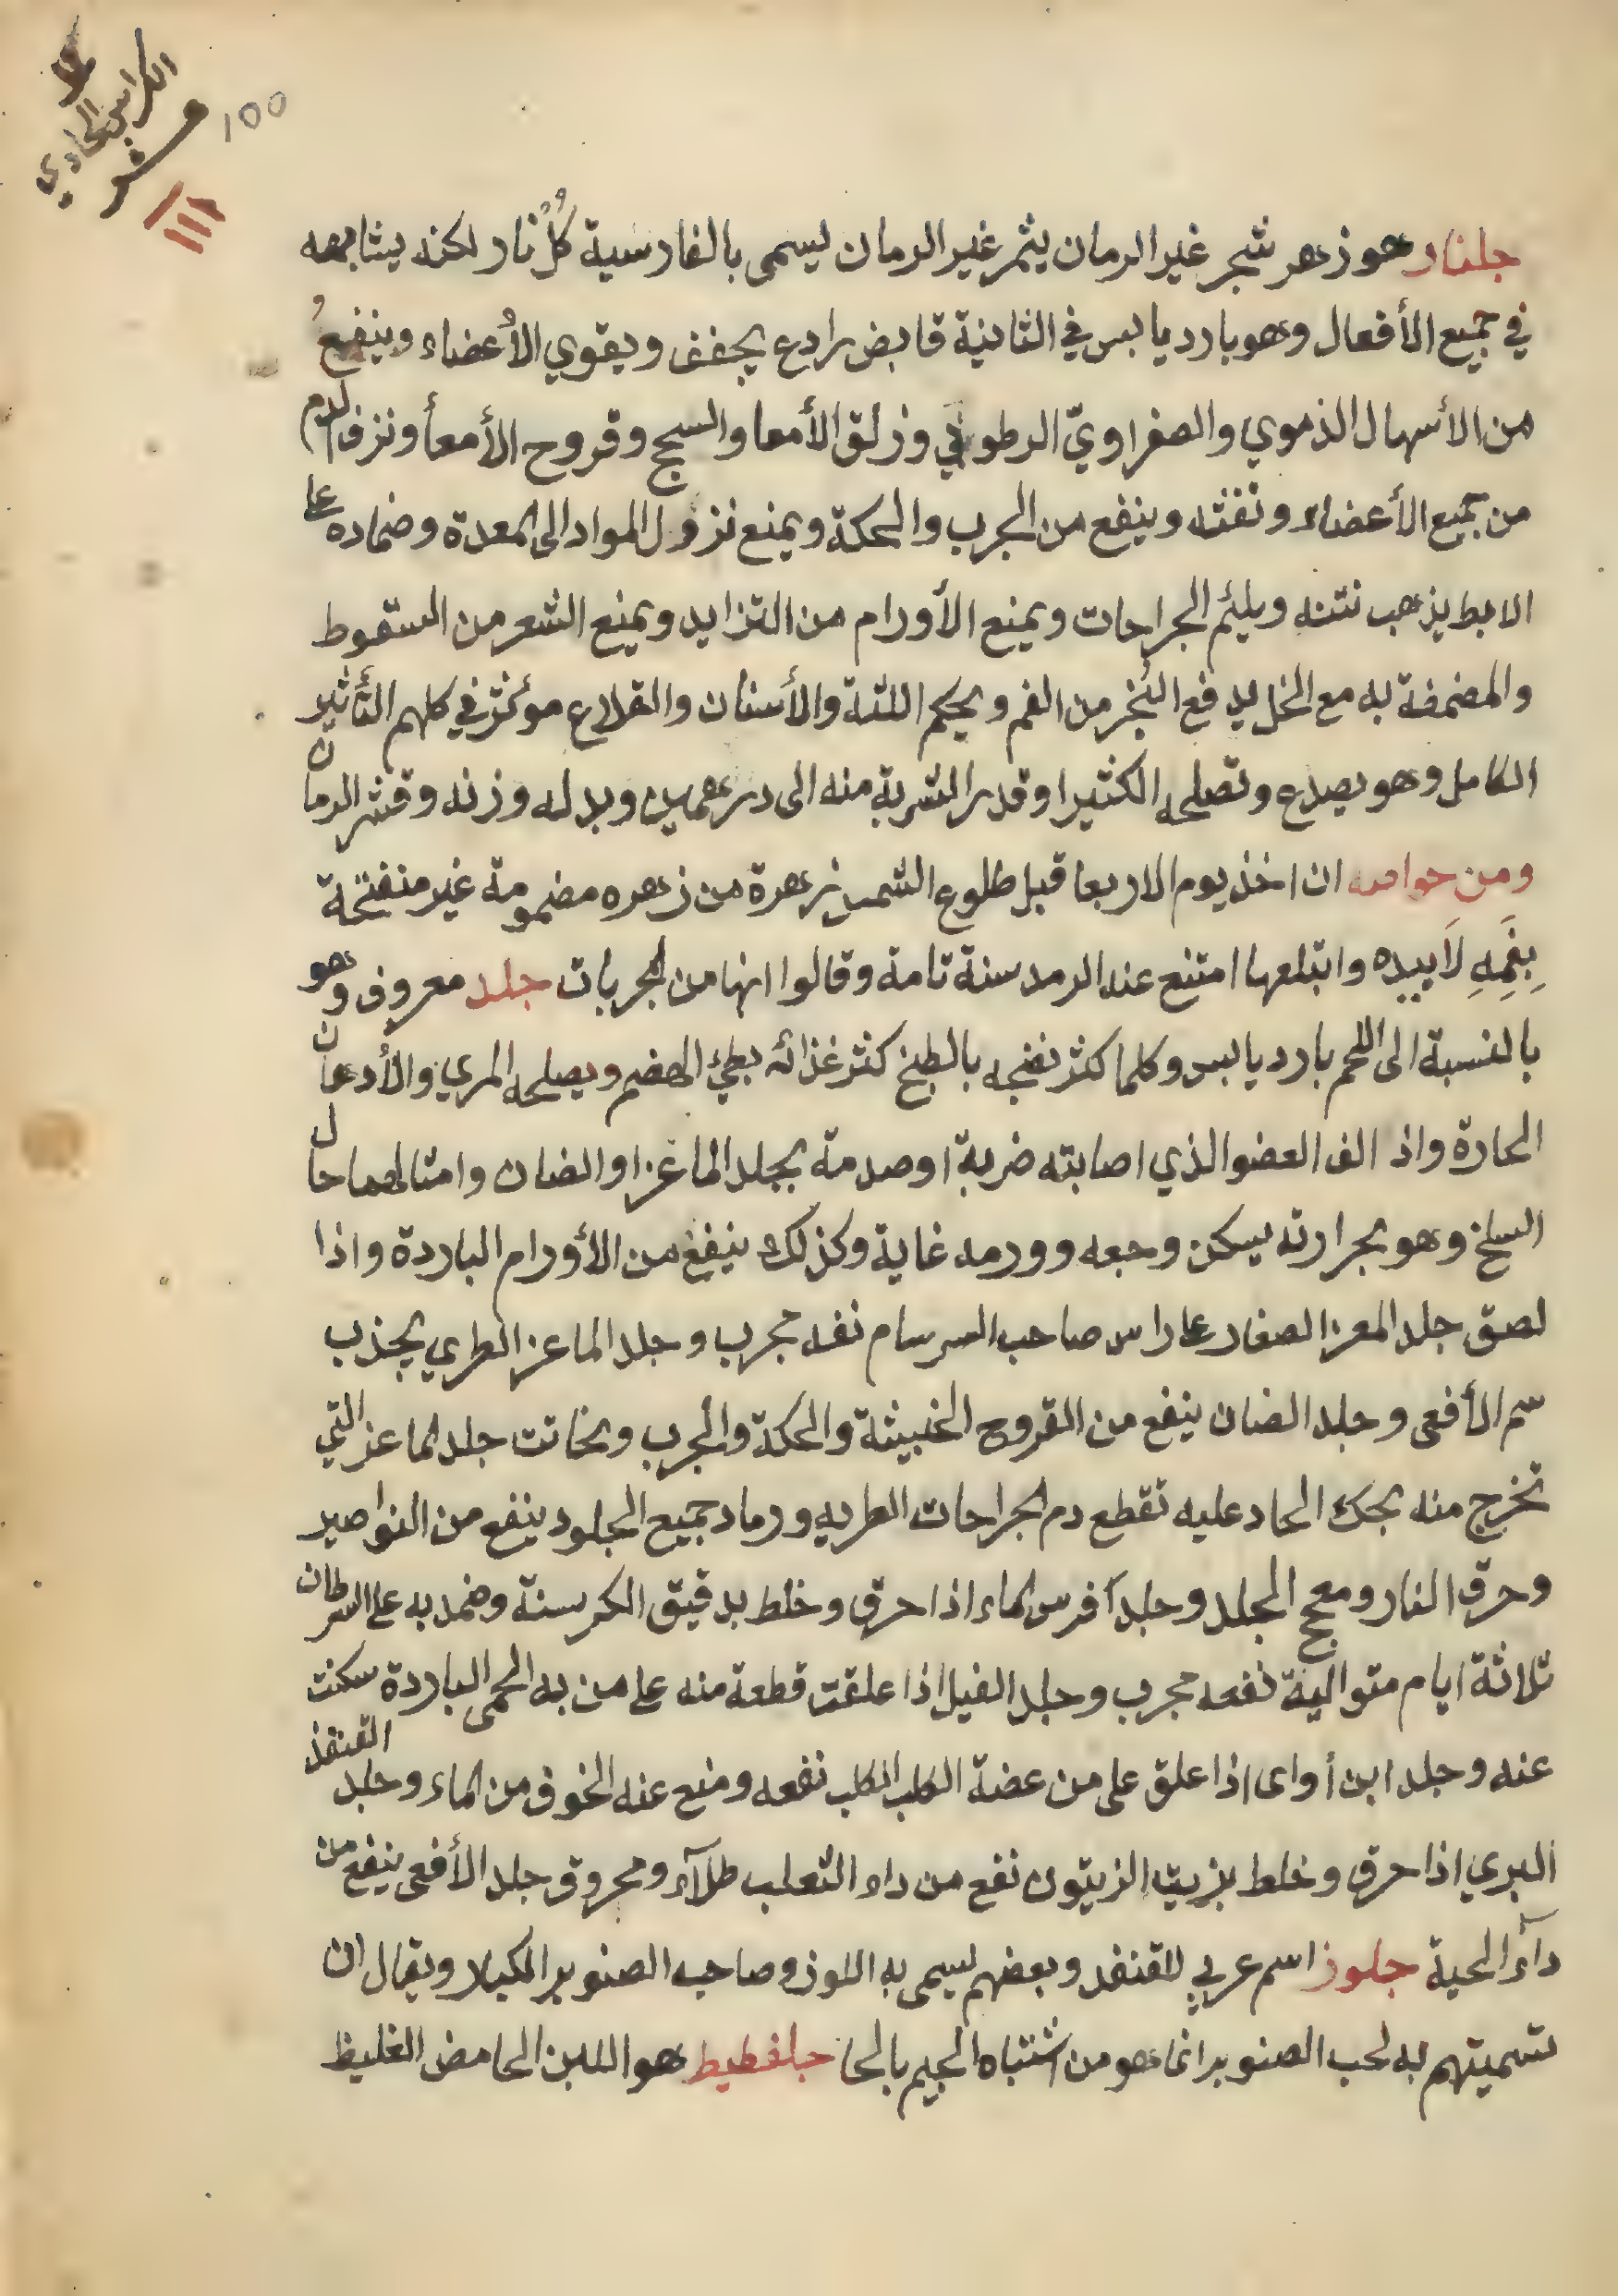 الكراس الحادي
عشر
100
111
جلنار هو زهر شجر غير الرمان يثمر غير الرمان ليسمى بالفارسية كُلُنار لكنه يشابهه
في جميع الأفعال وهو بارد يابس في الثانية قابض رادع يجفف ويقوي الأعضاء وينفع
من الأسهال الدموي والصفراويّ الرطوبي وزلق الأمعا والسحج وقروح الأمعأ ونزف الدم
من جميع الأعضاء ونفثه وينفع من الجرب والحكة ويمنع نزول المواد الى المعدة وضماده على
الابط يذهب نتنه ويلئم الجراحات ويمنع الأورام من التزايد ويمنع الشعر من السقوط
والمضمضة به مع الخل يدفع البخر من الفم ويحكم اللثة والأسنان والقلاع مؤثر في كلهم التأثير
الكامل وهو يصدع وتصلحه الكثيرا وقدر الشربة منه الى درهمين وبدله وزنه وقشر الرمان
ومن خواصه ان اخذ يوم الاربعا قبل طلوع الشمس زهرة من زهره مضمومة غير منفتحة
بِفَمِهِ لَا بيده وابتلعها امتنع عنه الرمد سنة تامة وقالوا انها من المجربات جلد معروف وهو
بالنسبة الى اللحم بارد يابس وكلما كثر نضجه بالطبخ كثر غذائه بطئ الهضم ويصلحه المري والأدهان
الحارة واذا لف العضو الذي اصابته ضربة اوصدمة بجلد الماعز او الضان وامثالهما حال
السلخ وهو بحرارته يسكن وجعه وورمه غاية وكذلك ينفع من الأورام الباردة واذا
لصق جلد المعز الصغار على راس صاحب السرسام نفعه مجرب وجلد الماعز الطري يجذب
سم الأفعى وجلد الضان ينفع من القروح الخبيثة والحكة والجرب ونحاتت جلد الماعز التي
تخرج منه بحك الحاد عليه تقطع دم الجراحات الطريه ورماد جميع الجلود ينفع من النواصير
وحرق النار وسحج الجلد وجلد آفرس الماء اذا حرق وخلط بدقيق الكرسنة وضمد به على السرطان
ثلاثة ايام متوالية نفعه مجرب وجلد الفيل اذا علقت قطعة منه على من به الحمى الباردة سكنت
عنه وجلد ابن أواى اذا علق على من عضة الكلب الكلب نفعه ومنع عنه الخوف من الماء وجلد القنفذ
البري اذا حرق وخلط بزيت الزيتون نفع من داء الثعلب طلآء ومحروق جلد الأفعى ينفع من
دآء الحية جلوز اسم عربي للقنفد وبعضهم ليسمى به اللوز وصاحب الصنوبر المكيلا ويقال ان
تسميتهم به لحب الصنوبر انما هو من اشتباه الجيم بالحا جلفطيط هو اللبن الحامض الغليظ